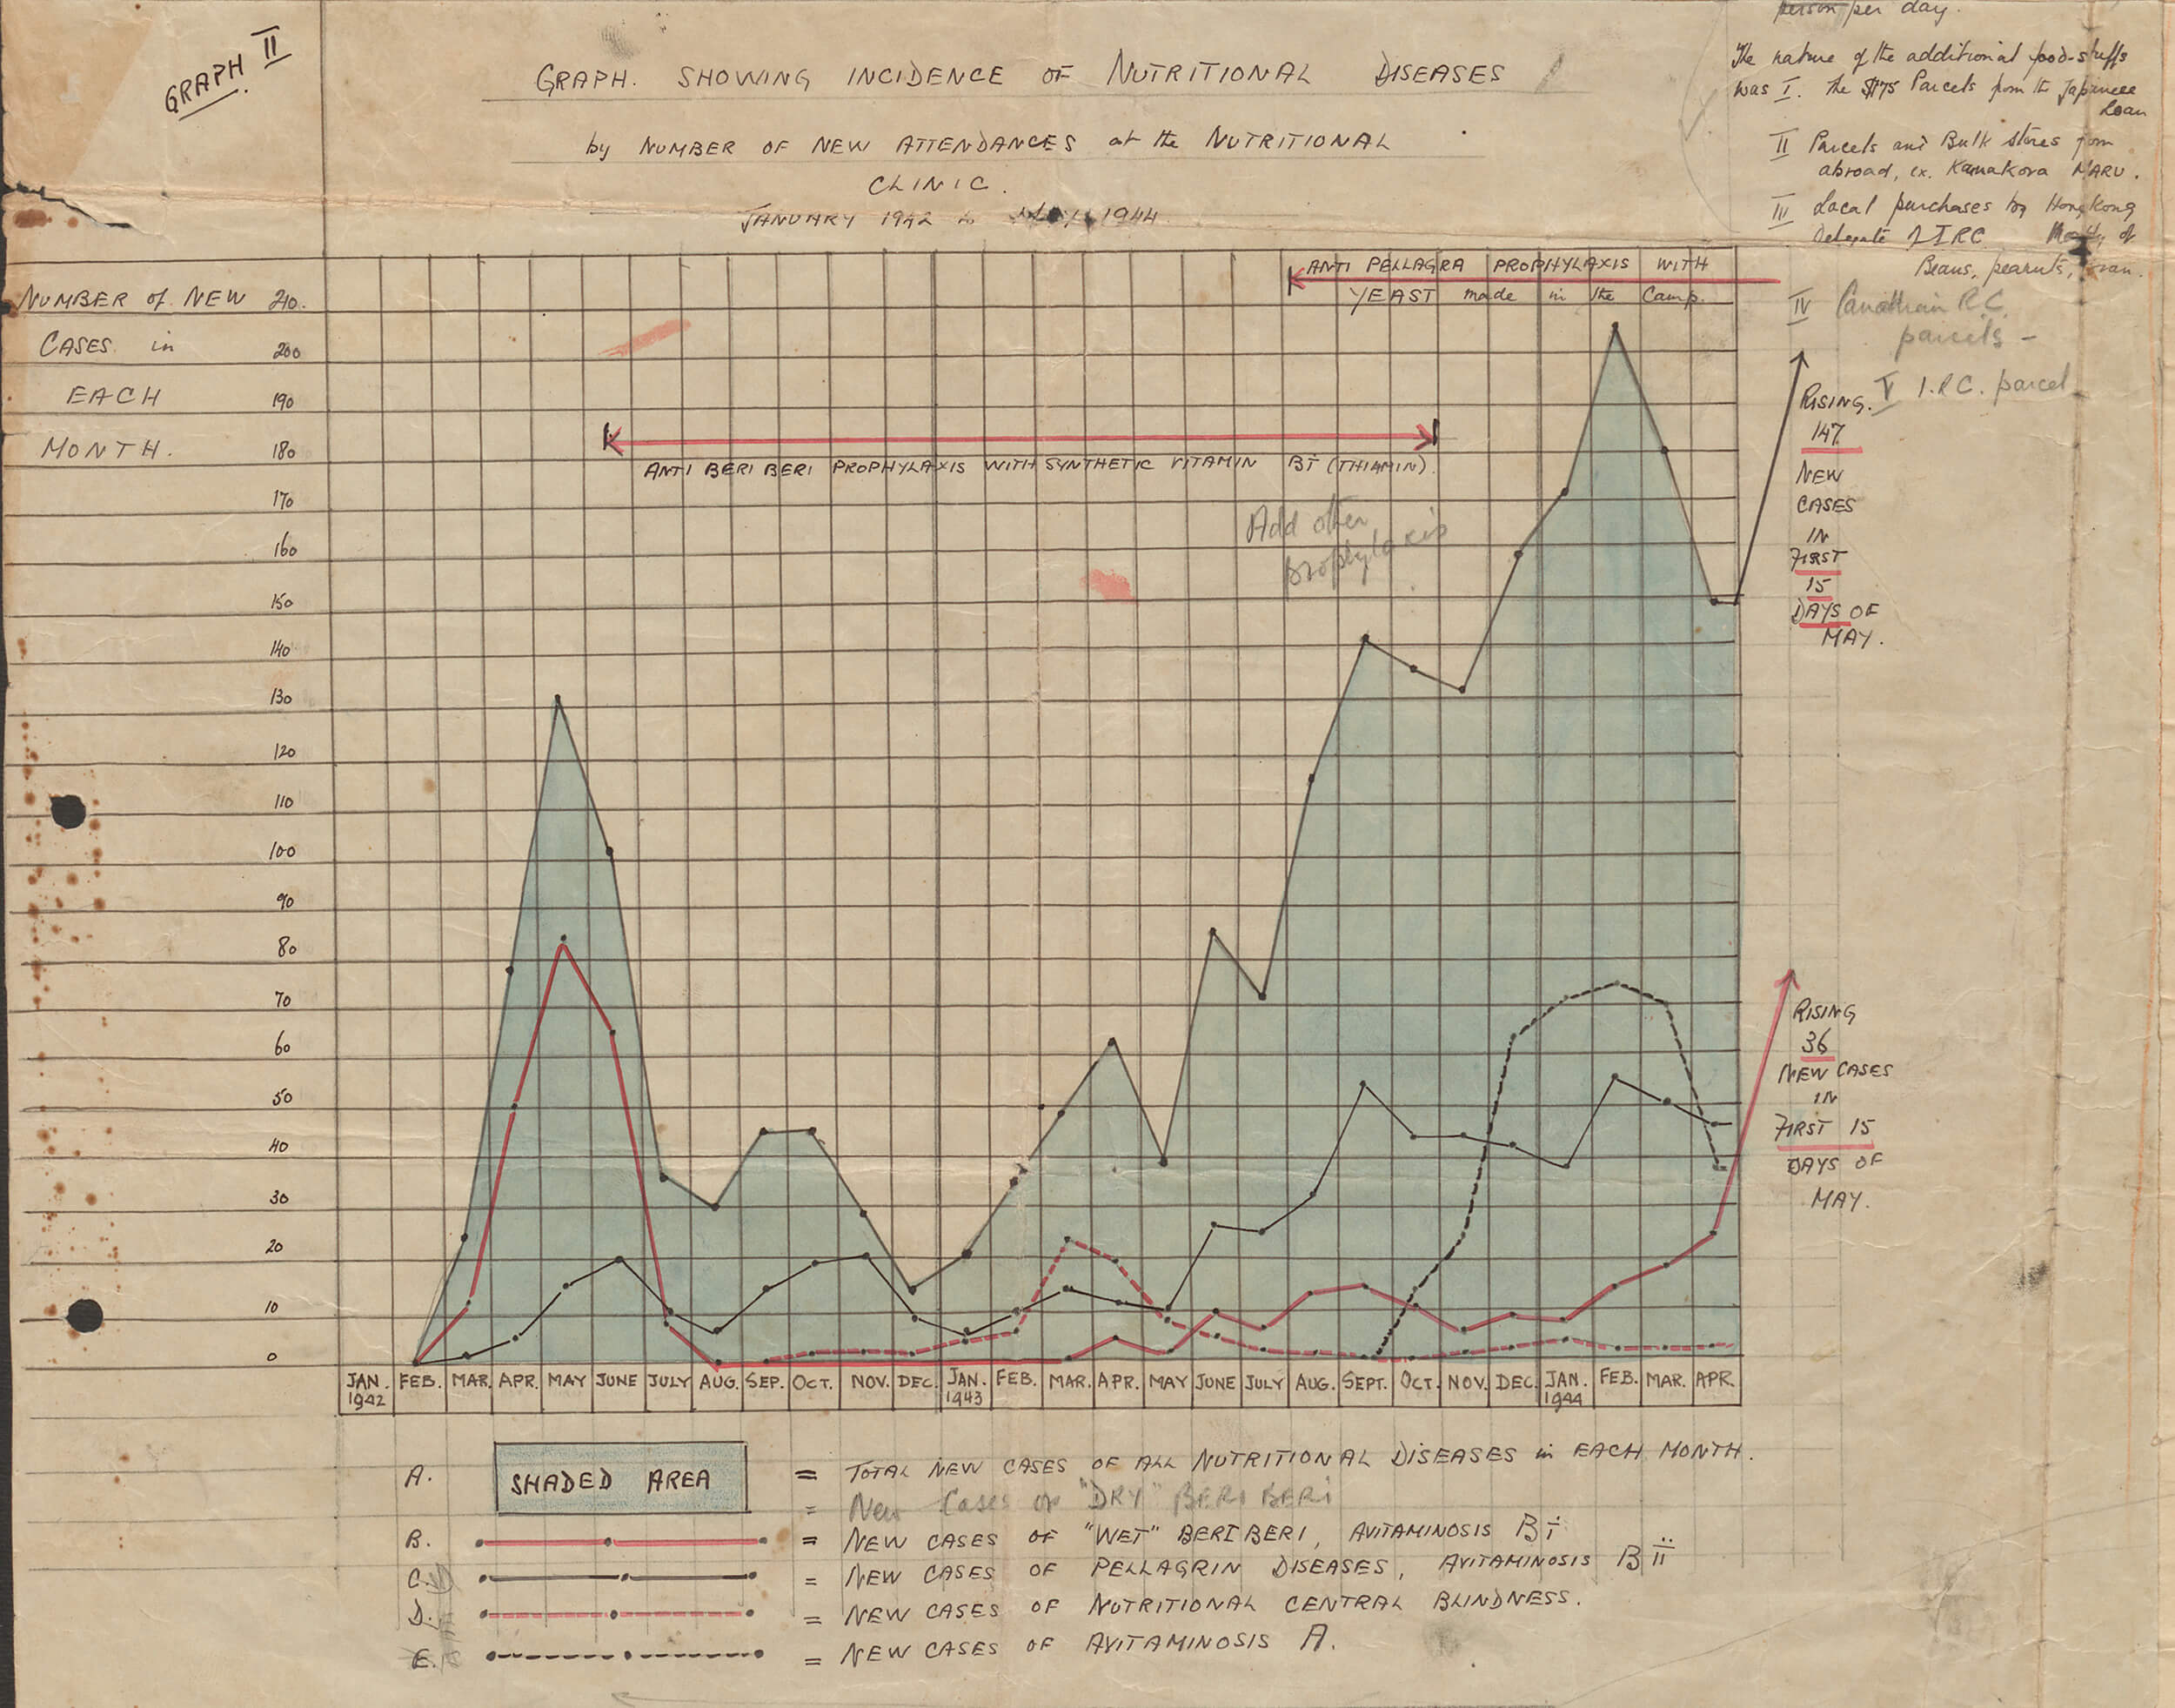 GRAPH II
GRAPH. SHOWING INCIDENCE OF NUTRITIONAL DISEASES
by NUMBER OF NEW ATTENDANCES at the NUTRITIONAL
CLINIC.
JANUARY 1942 to 1944
person per day.
The nature of the additional food-stuffs
was I. The Parcels from the Japanese
Loan
II Parcels and Bulk stores from
abroad, ex. Kamakora MARU.
III Local purchases by Hong Kong
Delegate of IRC Mostly of
Beans, peanuts, bran.
IV Canadian R.C.
parcels -
V I.R.C. parcel
NUMBER of NEW
CASES in
EACH
MONTH.
210.
200
190
180
170
160
150
140
130
120
110
100
90
80
70
60
50
40
30
20
10
0
ANTI PELLAGRA PROPHYLAXIS WITH
YEAST made in the Camp.
ANTI BERI BERI PROPHYLAXIS WITH SYNTHETIC VITAMIN Bi (THIAMIN).
Add other
prophylaxis
RISING.
147
NEW
CASES
IN
FIRST
15
DAYS OF
MAY.
RISING
36
NEW CASES
IN
FIRST 15
DAYS OF
MAY.
JAN. 1942 FEB. MAR. APR. MAY JUNE JULY AUG. SEP. OCT. NOV. DEC. JAN. 1943 FEB. MAR. APR. MAY JUNE JULY AUG. SEPT. OCT. NOV. DEC. JAN. 1944 FEB. MAR. APR.
A. SHADED AREA = TOTAL NEW CASES OF ALL NUTRITIONAL DISEASES in EACH MONTH.
= New Cases of "DRY" BERI BERI
B. = NEW CASES OF "WET" BERIBERI, AVITAMINOSIS Bi
C. = NEW CASES OF PELLAGRIN DISEASES, AVITAMINOSIS Bii
D. = NEW CASES OF NUTRITIONAL CENTRAL BLINDNESS.
E. = NEW CASES OF AVITAMINOSIS A.